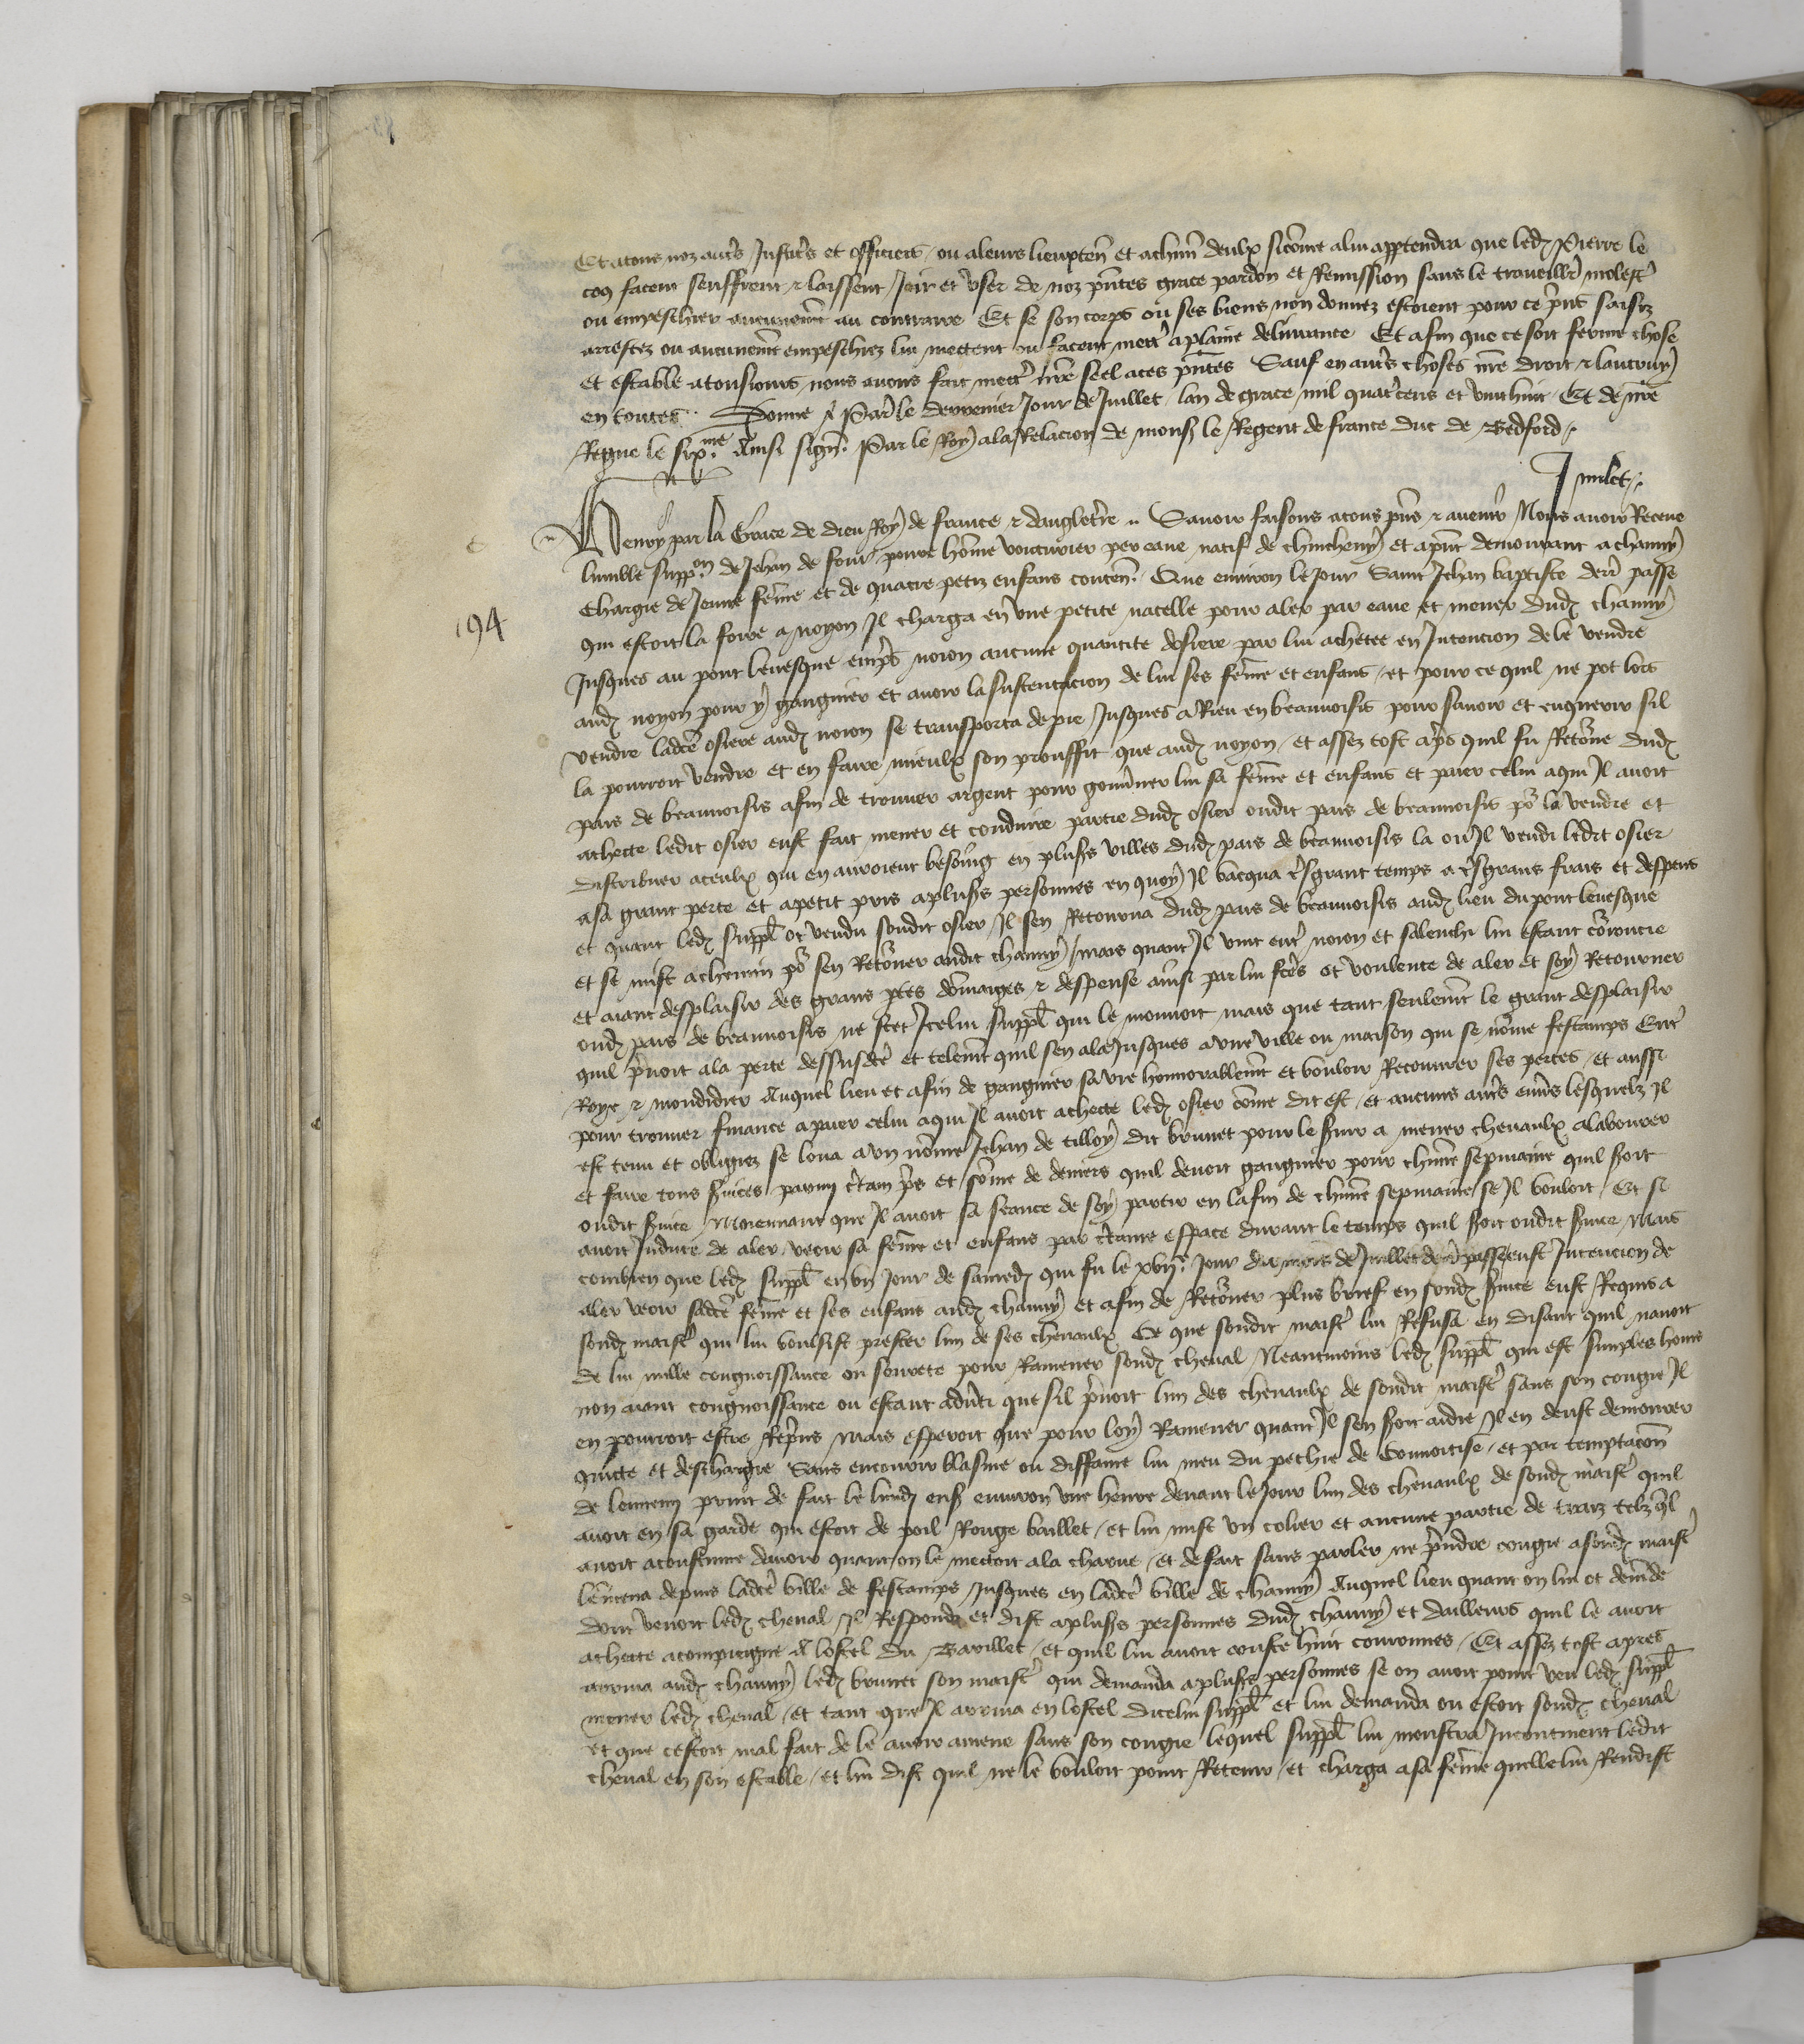 Et a tous noz autres Justiciers et officiers ou a leurs lieuxten et a chun deulx si come a lui appartendra que led Pierre le
coq facent seuffrent & laissent Joir et user de noz pntes grace pardon et Remission sans le traveillier molester
ou empeschier aucunemt au contraire Et se son corps ou ses biens non donnez estoient pour ce prins saisiz
arrestez ou aucunemt empeschiez lui mettent ou facent mettre a plaine delivrance Et afin que ce soit ferme chose
et estable a tousiours nous avons fait mettre nre seel a ces pntes Sauf en autres choses nre droit & lautruy
en toutes. Donne a Paris le derrenier Jour de Juillet lan de grace mil quatrecens et vinthuit Et de nre
Regne le sixme Ainsi signe. Par le Roy a la Relacion de mons le Regent de france duc de Bedford
J milet
Henry par la Grace de dieu Roy de france & dangleterre Savoir faisons a tous pns & avenir Nous avoir Receue
lumble suppon de Jehan de four povre home voiturier par eaue natif de chincheny et a pnt demourant a chauny
Chargie de Jeune feme et de quatre petiz enfans conten. Que environ le Jour Saint Jehan baptiste derr passe
194
qui estoit la foire a noyon Il charga en une petite nacelle pour aler par eaue et mener dud chauny
Jusques au pont levesque empres noion aucune quantite dosiere par lui achetee en Intencion de le vendre
aud noyon pour y gangnier et avoir la sustentacion de lui ses feme et enfans et pour ce quil ne pot lors
vendre ladce osiere aud noion se transporta de pie Jusques a Rieu en beauvoisis pour savoir et enquerir sil
la pourroit vendre et en faire mieulx son prouffit que aud noyon et assez tost apres quil fu Retorne dud
pais de beauvoisis afin de trouver argent pour gouvner lui sa feme et enfans et paier celui a qui Il avoit
achecte ledit osier eust fait mener et conduire partie dud osier oudit pais de beauvoisis por la vendre et
distribuer a ceulx qui en auroient besoing en plusrs villes dud pais de beauvoisis la ou Il vendi ledit osier
a sa grant perte et a petit pris a plusrs personnes en quoy Il vacqua tresgrant temps a tresgrans frais et despens
et quant led suppl ot vendu sondit osier Il sen Retourna dud pais de beauvoisis aud lieu du pont levesque
et se mist a chemin por sen Retorner audit chauny mais quant Il vint entre noion et salenchi lui estant corroucie
et aiant desplaisir des grans ptes domaiges & despense ainsi par lui fctes et voulente de aler et soy Retourner
oud pais de beauvoisis ne scet Icelui suppl qui le mouvoit mais que tant seulemt le grant desplaisir
quil prenoit a la perte dessusdce et telemt quil sen ala Jusques a une ville ou maison qui se nome festamps Entre
Roye & mondidier Auquel lieu et afin de gangnier sa vie honnorablemt et vouloir Recouvrer ses pertes et aussi
pour trouver finance a paier celui a qui Il avoit achecte led osier come dit est et aucuns autres envers lesquelz Il
est tenu et obligiez se loua a un nome Jehan de tilloy dit brunet pour le servir a mener chevaulx a labourer
et faire tous services parmy certain pris et some de deniers quil devoit gangnier pour chune sepmaine quil seroit
oudit service Moiennant que Il avoit sa seance de soy partir en la fin de chune sepmaine se Il vouloit Et si
avoit Induce de aler veoir sa feme et enfans par certaine espace durant le temps quil seroit oudit service Mais
combien que led suppl en un Jour de samedi qui fu le xvije Jour du mois de Juillet derr passe eust Intencion de
aler veoir sadce feme et ses enfans aud chauny et afin de Retorner plus brief en sond service eust Requis a
sond maistre qui lui voulsist prester lun de ses chevaulx Ce que sondit maistre lui Refusa en disant quil navoit
de lui nulle congnoissance ou seurete pour Ramener sond cheval Neantmoins led suppl qui est simples homs
non aiant congnoissance ou estant adverti que sil prenoit lun des chevaulx de sondit maistre sans son congie Il
en pourroit estre Reprins Mais esperoit que pour loy Ramener quant Il sen seroit aidie Il en deust demourer
quicte et deschargie Sans encourir blasme ou diffame lui meu du pechie de Convoitise et par temptacon
de lennemy print de fait le lundi ens environ une heure devant le Jour lun des chevaulx de sond maistre quil
avoit en sa garde qui estoit de poil Rouge baillet et lui mist un colier et aucune partie de traiz telz quil
avoit acoustume davoir quant on le mectoit a la charue et de fait sans parler ne prendre congie a sond maistre
lemena depuis ladce ville de festamps Jusques en ladce ville de chauny Auquel lieu quant on lui ot demde
dont venoit led cheval Il Respondi et dist a plusrs personnes dud chauny et dailleurs quil le avoit
achecte a compiengne A lostel du Barillet et quil lui avoit couste huit couronnes Et assez tost apres
arriva aud chauny led brunet son maistre qui demanda a plusrs personnes se on avoit point veu led suppl
mener led cheval et tant que Il arriva en lostel dicelui suppl et lui demanda ou estoit sond cheval
et que cestoit mal fait de le avoir amene sans son congie lequel suppl lui monstra Incontinent ledit
cheval en son estable et lui dist quil ne le vouloit point Retenir et charga a sa feme quelle lui Rendist